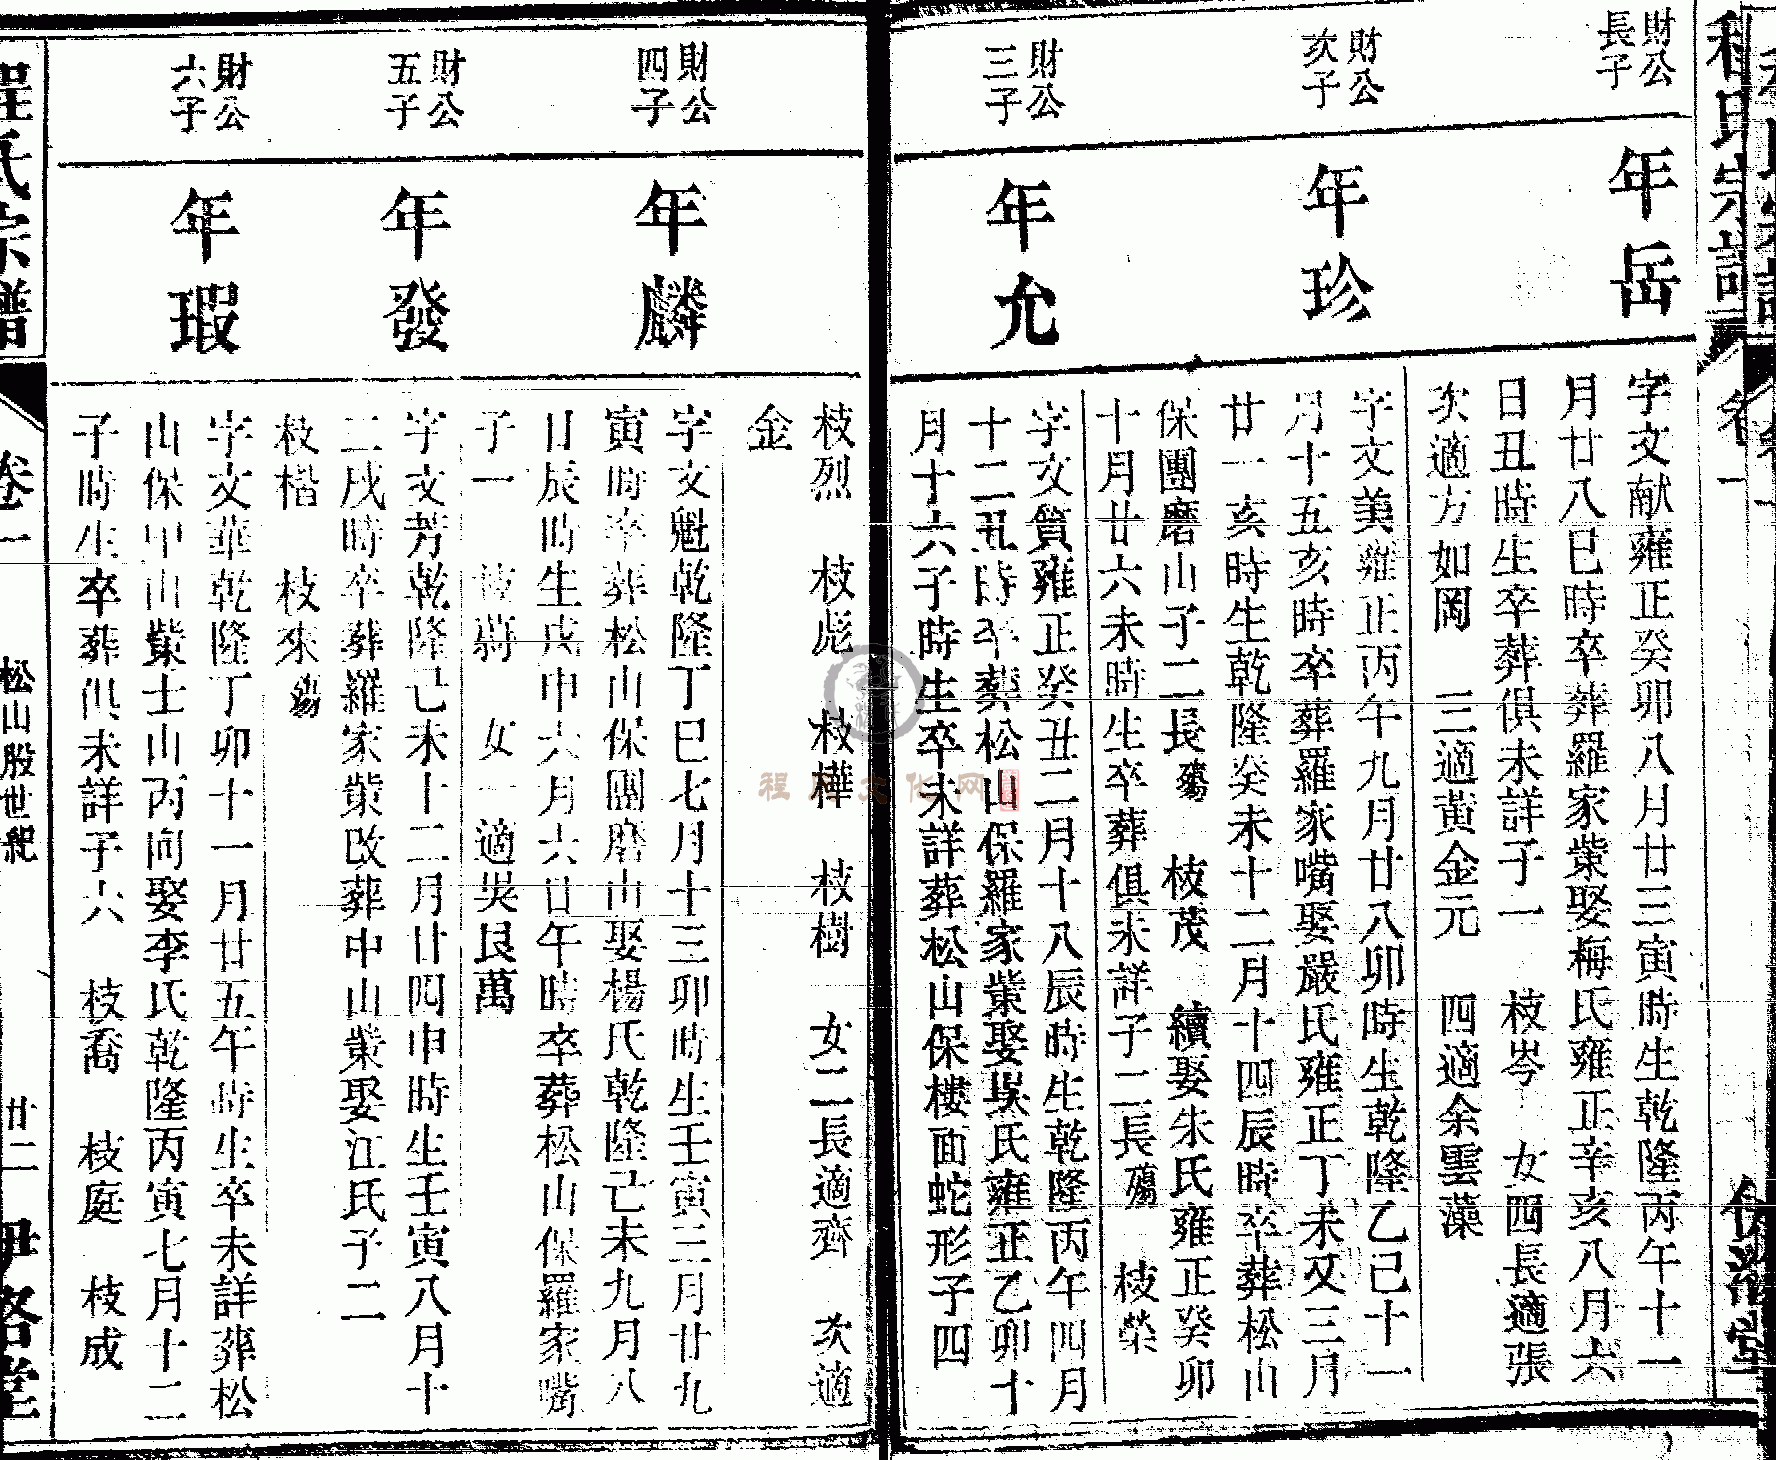 程氏宗譜
卷一
財公
長子
年岳
字文献雍正癸卯八月廿三寅時生乾隆丙午十一
月廿八巳時卒葬羅家柴娶梅氏雍正辛亥八月六
日丑時生卒葬俱未詳子一 枝岑 女四長適張
次適方如岡 三適黃金元 四適余雲藻
財公
次子
年珍
字文美雍正丙午九月廿八卯時生乾隆乙己十一
月十五亥時卒葬羅家嘴娶嚴氏雍正丁未又三月
廿一亥時生乾隆癸未十二月十四辰時卒葬松山
保團磨山子二長殤 枝茂 續娶朱氏雍正癸卯
十月廿六未時生卒葬俱未詳子二長殤 枝榮
財公
三子
年允
字文質雍正癸丑二月十八辰時生乾隆丙午四月
十二丑時卒葬松山保羅家柴娶吳氏雍正乙卯十
月十六子時生卒未詳葬松山保樓面蛇形子四
枝烈 枝彪 枝樺 枝樹 女二長適齊 次適
金
財公
四子
年麟
字文魁乾隆丁巳七月十三卯時生壬寅三月廿九
寅時卒葬松山保團磨山娶楊氏乾隆己未九月八
日辰時生戊申六月六廿午時卒葬松山保羅家嘴
子一 枝蔚 女一適吳艮萬
財公
五子
年發
字文芳乾隆己未十二月廿四申時生壬寅八月十
二戌時卒葬羅家柴改葬中山柴娶江氏子二
枝楷 枝來殤
財公
六子
年瑕
字文華乾隆丁卯十一月廿五午時生卒未詳葬松
山保中山柴士山丙向娶李氏乾隆丙寅七月十二
子時生卒葬俱未詳子六 枝喬 枝庭 枝成
程氏宗譜
卷一
松山股世紀
廿二
伊洛堂